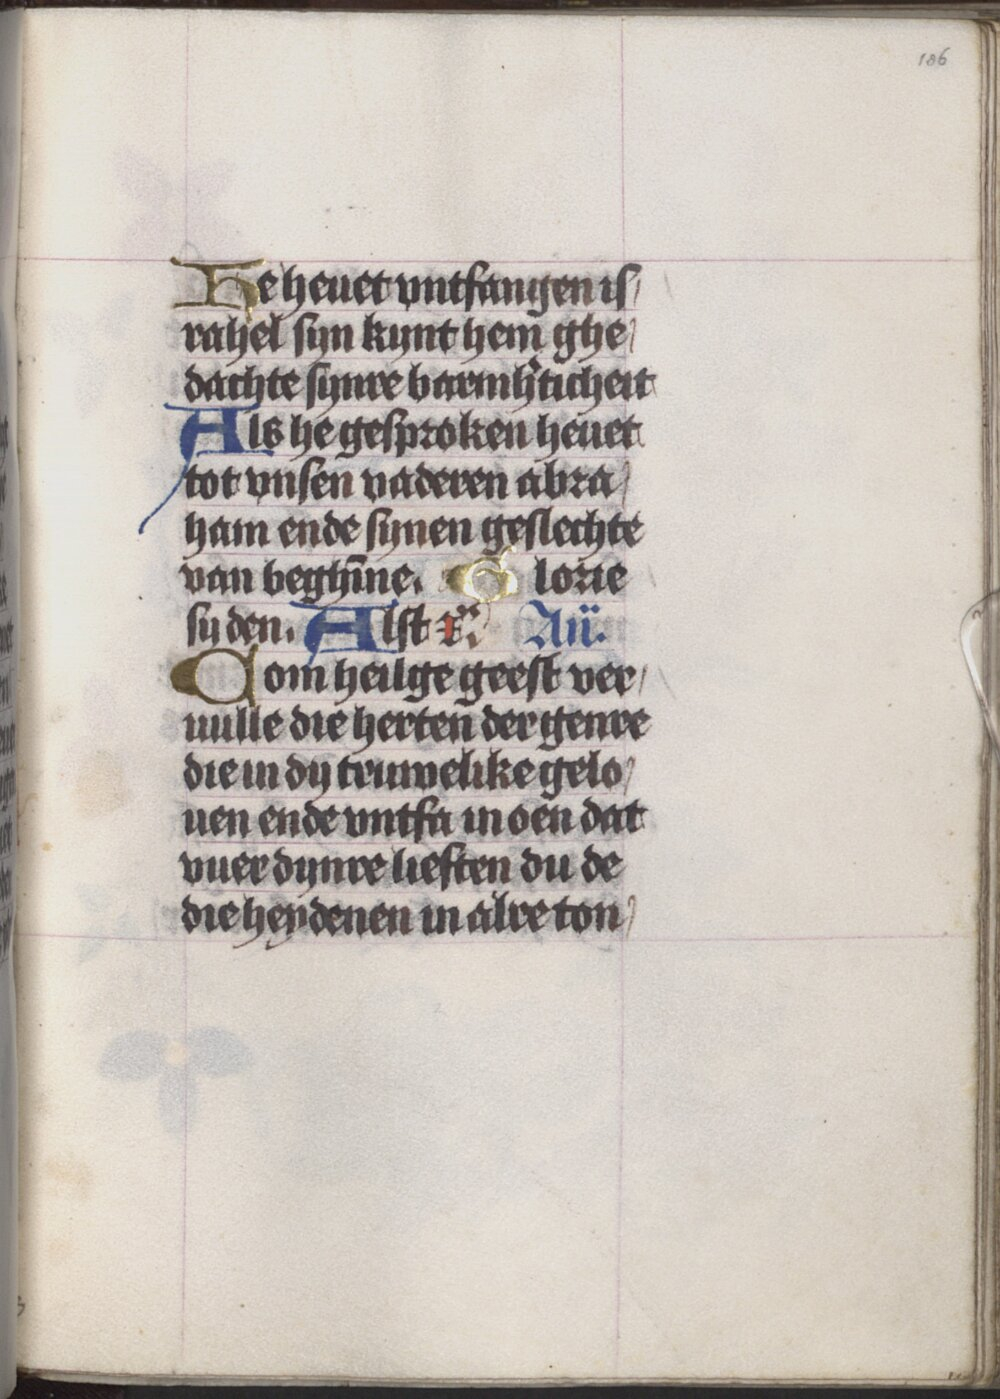 186
He heuet vntfangen is/
rahel syn kynt hem ghe/
dachte synre barmh'ticheit
Als he gesproken heuet
tot vnsen vaderen abra/
ham ende synen geslechte
van beghīne. Glorie
sy den. Alst
Com heilge geest ver/
uulle die herten der genre
die in dy truwelike gelo/
uen ende vntfa in oen dat
vuer dynre lieften du de
die heydenen in alre ton/